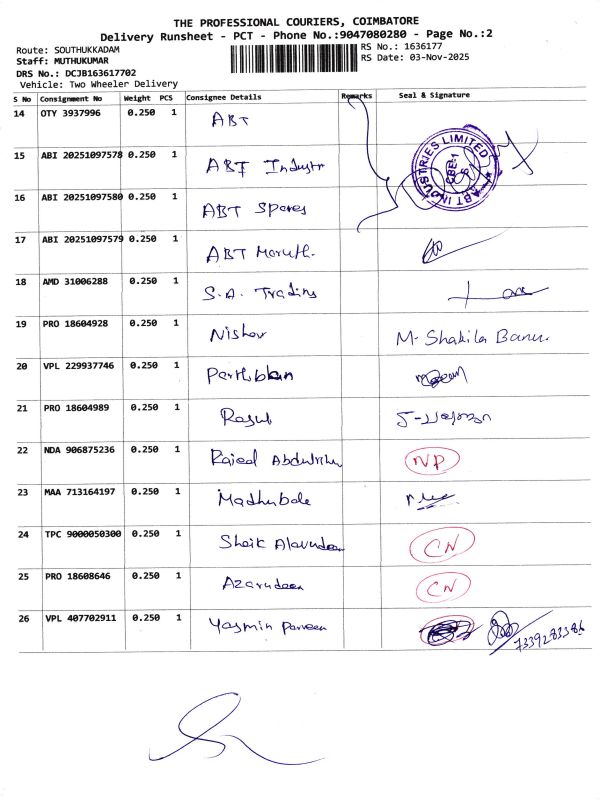 THE PROFESSIONAL COURIERS, COIMBATORE
Delivery Runsheet - PCT - Phone No.:9047080280 - Page No.:2
Route: SOUTHUKKADAM RS No.: 1636177
Staff: MUTHUKUMAR RS Date: 03-Nov-2025
DRS No.: DCJB163617702
Vehicle: Two Wheeler Delivery
S No Consignment No Weight PCS Consignee Details Remarks Seal & Signature
14 OTY 3937996 0.250 1 ABT
15 ABI 20251097578 0.250 1 ABT Industr
ABT INDUSTRIES LIMITED CBE-1
16 ABI 20251097580 0.250 1 ABT Spares
17 ABI 20251097579 0.250 1 ABT Maruth.
18 AMD 31006288 0.250 1 S.A. Trading
19 PRO 18604928 0.250 1 Nishov M. Shakila Banu.
20 VPL 229937746 0.250 1 Parthiban
21 PRO 18604989 0.250 1 Rasul
22 NDA 906875236 0.250 1 NP
23 MAA 713164197 0.250 1 Madhubale
24 TPC 9000050300 0.250 1 Sheik Alavudeen CN
25 PRO 18608646 0.250 1 Azarudeen CN
26 VPL 407702911 0.250 1 Yasmin Parveen 7339283386